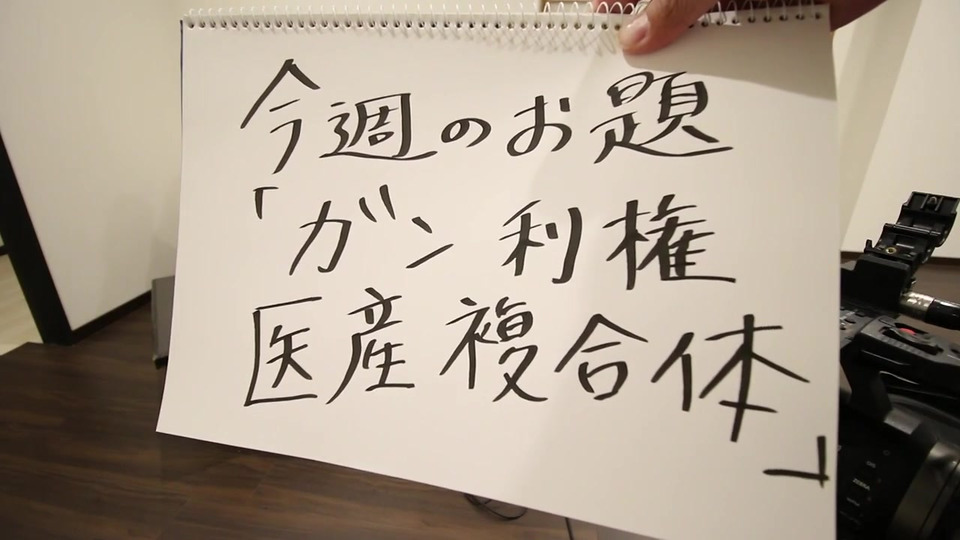 今週のお題
「ガン利権
医産複合体」